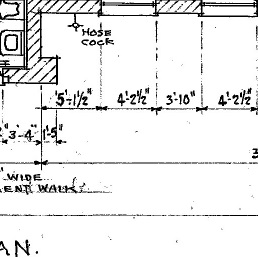 HOSE
COCK
5'-1½" 4'-2½" 3'-10" 4'-2½"
3'-4" 1'-5"
3
WIDE
ENT WALK
AN.